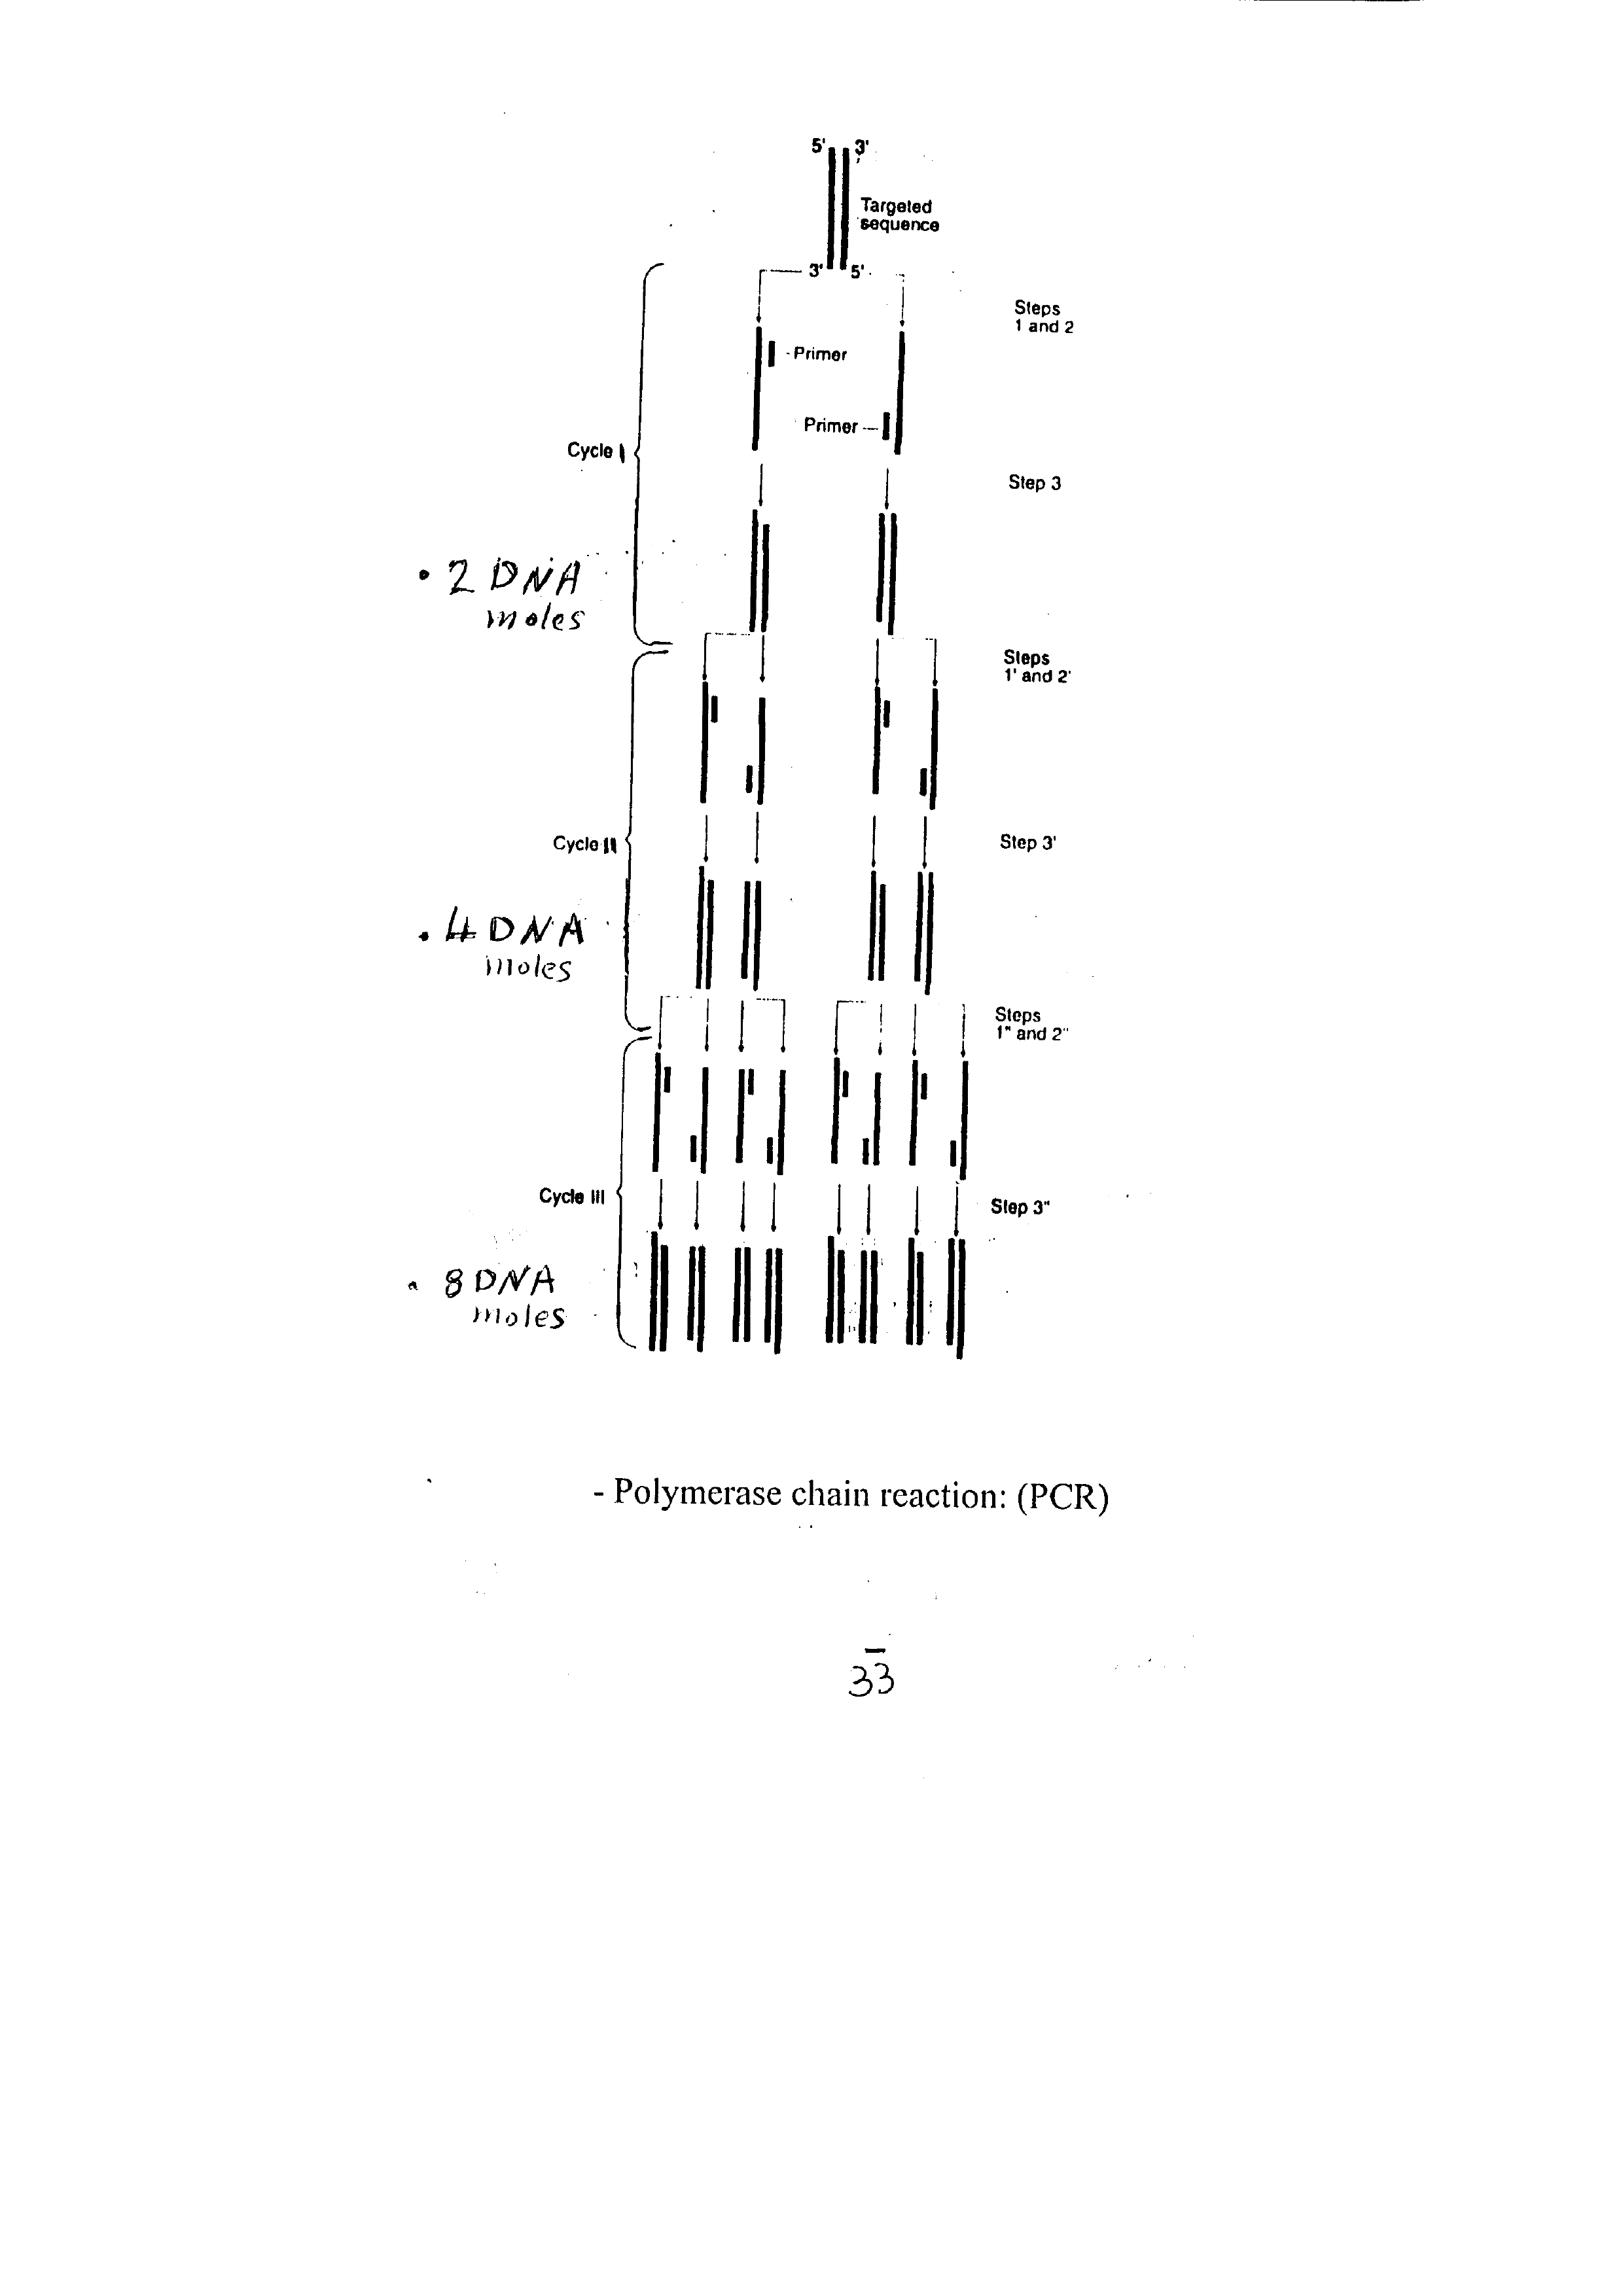 5' 3'
Targeted
sequence
3' 5'
Steps
1 and 2
- Primer
Primer —
Cycle I
Step 3
• 2 DNA
moles
Steps
1' and 2'
Cycle II
Step 3'
• 4 DNA
moles
Steps
1" and 2"
Cycle III
Step 3"
• 8 DNA
moles
- Polymerase chain reaction: (PCR)
33